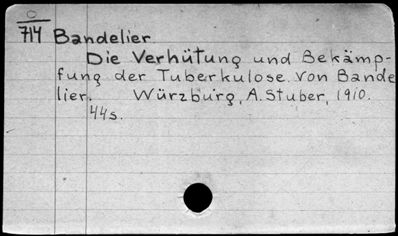 O
714 Bandelier
Die Verhütung und Bekämp-
fung der Tuberkulose. Von Bande
lier. Würzburg, A. Stuber, 1910.
44s.